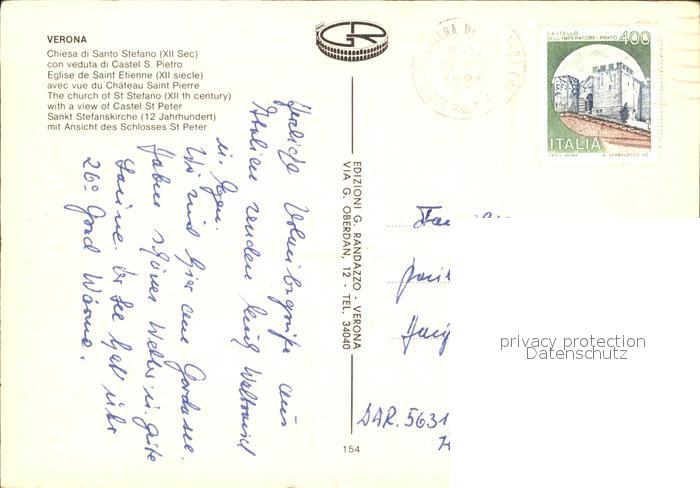 VERONA
Chiesa di Santo Stefano (XII Sec)
con veduta di Castel S. Pietro
Eglise de Saint Etienne (XII siecle)
avec vue du Château Saint Pierre
The church of St Stefano (XII th century)
with a view of Castel St Peter
Sankt Stefanskirche (12 Jahrhundert)
mit Ansicht des Schlosses St Peter
Herzliche Urlaubsgrüße aus
Italien senden Euch Waltraud
u.
Wir sind hier am Gardasee.
Haben schönes Wetter u. gute
Laune. Der See hat über
26° Grad Wärme.
EDIZIONI G. RANDAZZO - VERONA
VIA G. OBERDAN, 12 - TEL. 34040
154
CASTELLO
DELL'IMPERATORE - PRATO
400
ITALIA
DAR. 5631
privacy protection
Datenschutz